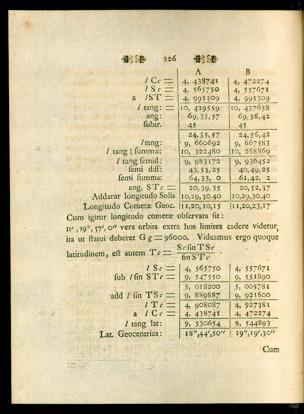 126
A B
l Cc = 4, 438741 4, 472274
l Sc = 4, 565750 4, 557671
a l ST = 4, 995309 4, 995309
l tang: = 10, 429559 10, 437638
ang: 69, 35, 57 69, 56, 42
subtr. 45 45
24, 35, 57 24, 56, 42
l tang: 9, 660692 9, 667583
l tang ∫ summæ: 10, 322480 10, 268869
l tang semid: 9, 983172 9, 936452
semi diff: 43, 53, 25 40, 49, 25
semi summa: 64, 33, 0 61, 42, 2
ang. STc = 20, 39, 35 20, 52, 37
Addatur longitudo Solis 10, 29, 30, 40 10, 29, 30, 40
Longitudo Cometæ Geoc. 11, 20, 10, 15 11, 20, 23, 17
Cum igitur longitudo cometæ observata sit:
11ˢ, 19°, 57', 0'' vera orbita extra hos limites cadere videtur,
ita ut statui deberet G g = 96000. Videamus ergo quoque
latitudinem, est autem Tc = Sc sin TSc
sin STc
l Sc = 4, 565750 4, 557671
sub l sin STc = 9, 547550 9, 551890
5, 018200 5, 005781
add l sin TSc = 9, 889887 9, 921600
l Tc = 4, 908087 4, 927381
a l Cc = 4, 438741 4, 472274
l tang lat: 9, 530654 9, 544893
Lat. Geocentrica: 18°, 44', 50'' 19°, 19', 30''
Cum